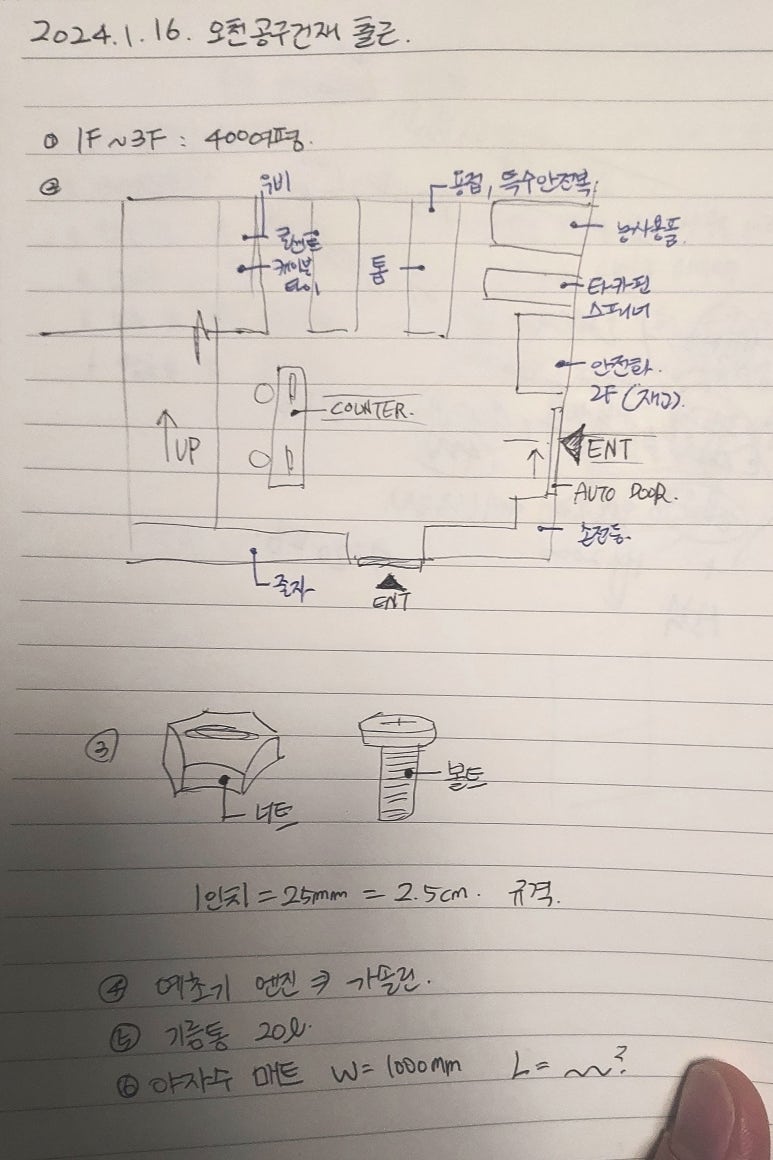 2024.1.16. 오천공구건재 출근.
① 1F~3F : 400여평.
②
우비
용접, 특수안전복
콘센트
케이블
타이
톱
농사용품
타카핀
스패너
안전화.
2F (재고).
COUNTER.
UP
ENT
AUTO DOOR.
손전등.
줄자
ENT
③
너트
볼트
1인치 = 25mm = 2.5cm. 규격.
④ 예초기 엔진 가솔린.
⑤ 기름통 20ℓ.
⑥ 야자수 매트 W= 1000mm L= ?